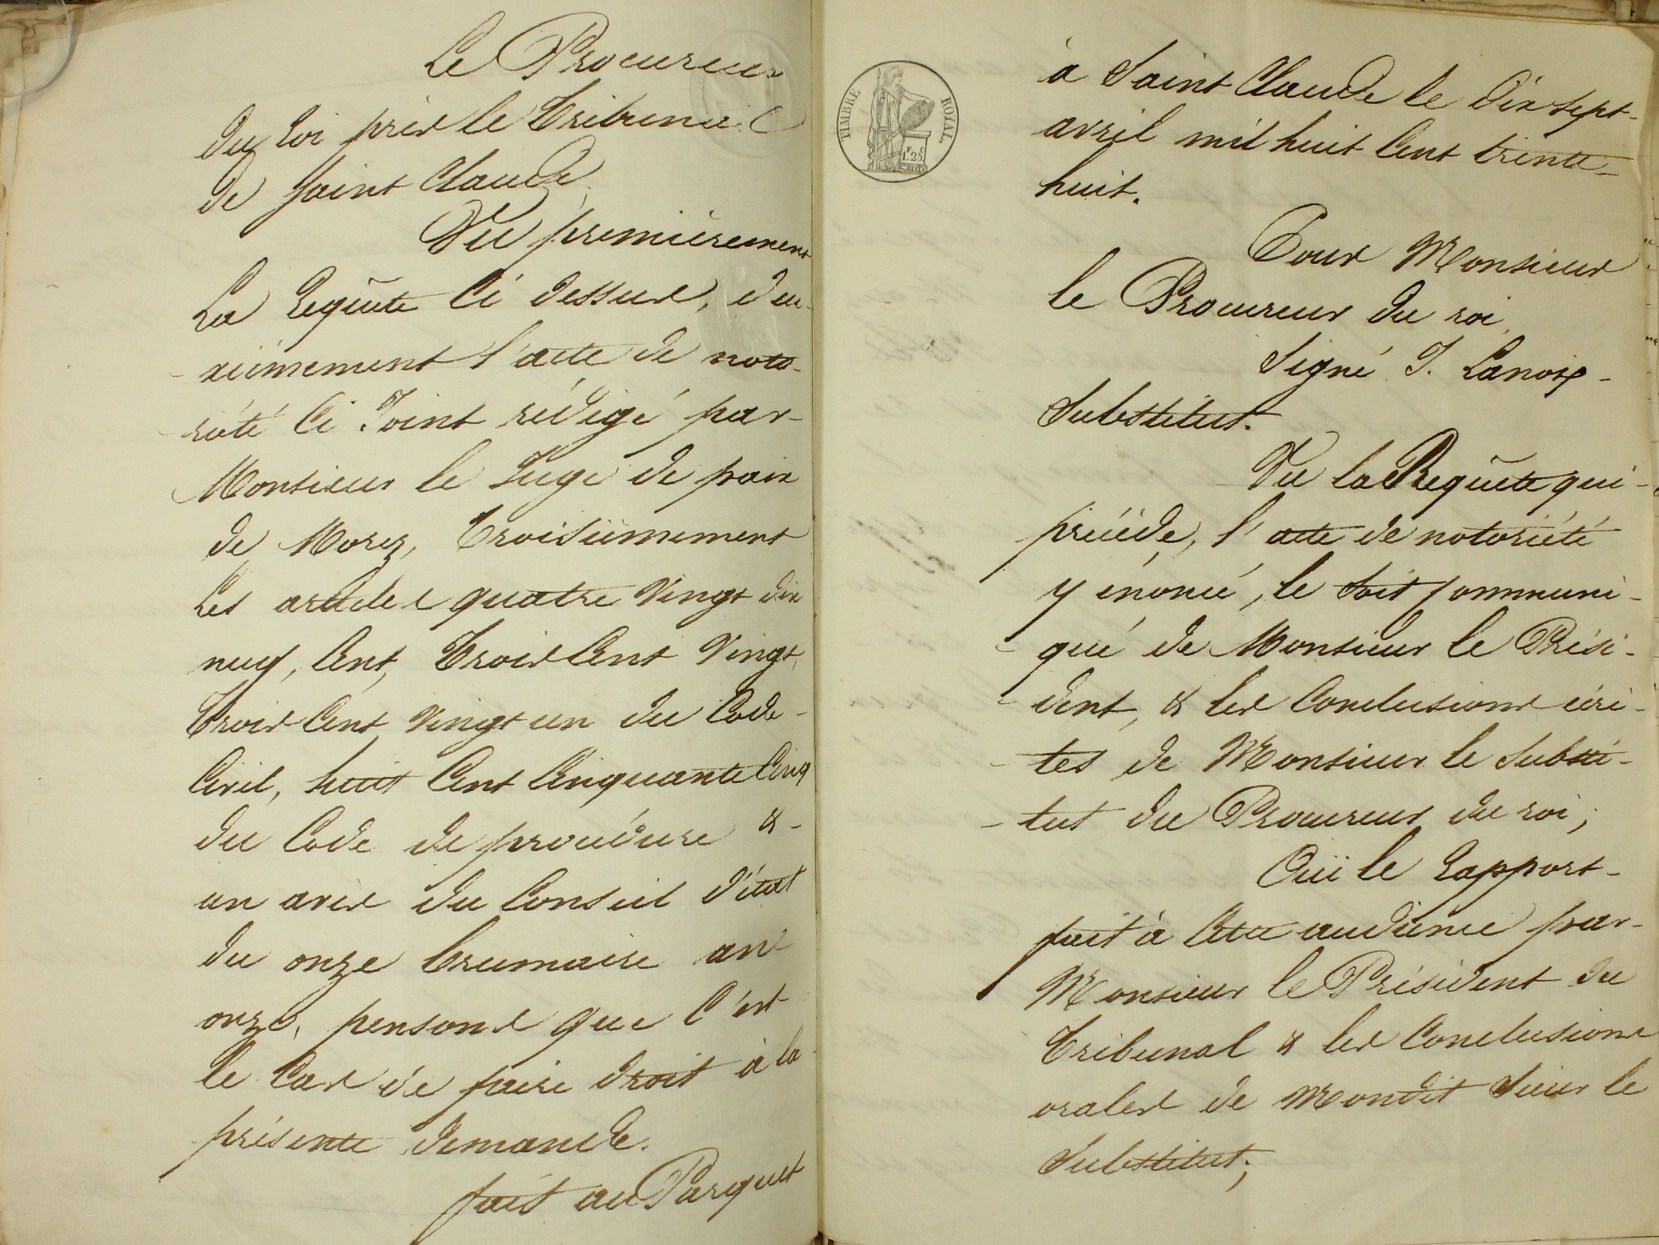 Le Procureur
du roi près le Tribunal
de Saint Claude
Vu premièrement
La Requête Ci dessus, deu-
xièmement l'acte de noto-
riété Ci Joint rédigé par
Monsieur le Juge de paix
de Morez, Troisièmement
Les articles quatre Vingt dix
neuf, Cent, Trois Cent Vingt,
Trois Cent Vingt un du Code
Civil, huit Cent Cinquante Cinq
du Code de procédure &
un avis du Conseil d'état
du onze brumaire an
onze, pensons que C'est
le Cas de faire droit à la
présente demande.
fait au Parquet
TIMBRE ROYAL
1f 25c
à Saint Claude le dix sept
avril mil huit Cent trente
huit.
Pour Monsieur
le Procureur du roi,
Signé J. Lanoix
Substitut.
Vu la Requête qui
précède, l'acte de notoriété
y énoncé, le Soit Communi-
qué de Monsieur le Prési-
dent, & les Conclusions écri-
tes de Monsieur le Substi-
tut du Procureur du roi;
Ouï le Rapport
fait à Cette audience par
Monsieur le Président du
Tribunal & les Conclusions
orales de Mondit Sieur le
Substitut;